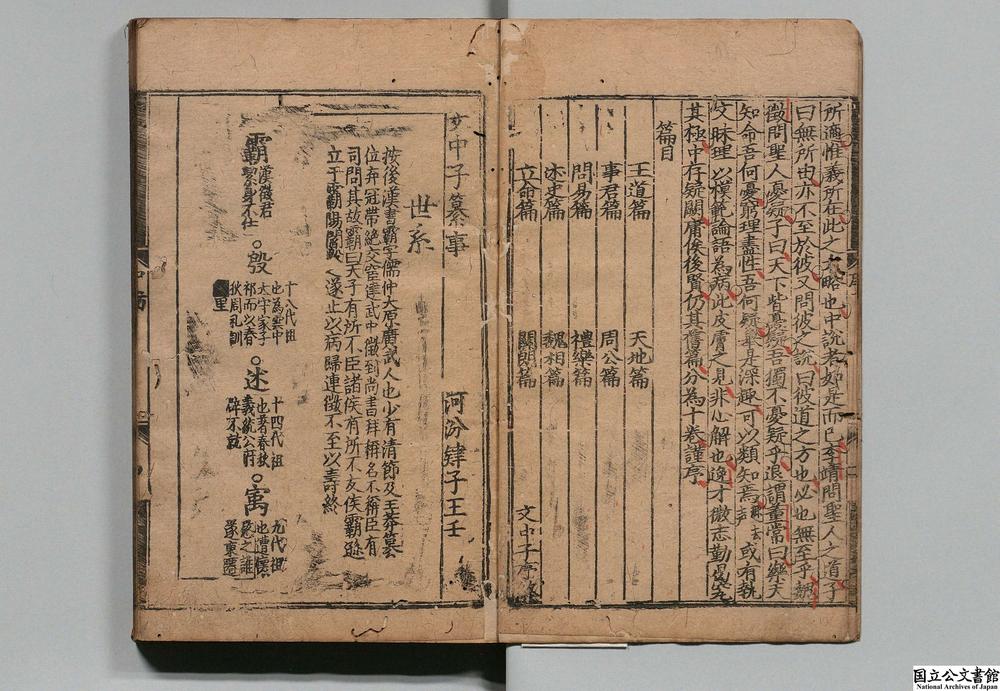 所適惟義所在此之大略也中說者如是而已李靖問聖人之道子
曰無所由亦不至於彼又問彼之說曰彼道之方也必也無至乎
徵問聖人憂疑子曰天下皆憂疑吾獨不憂疑乎退謂董常曰樂天
知命吾何憂窮理盡性吾何疑是深趣可以類知焉或有執
文昧理以模範論語為病此皮膚之見非心解也逸才微志勤
其極中存疑闕庸俟後賢仍其舊篇分為十卷謹序
篇目
王道篇 天地篇
事君篇 周公篇
問易篇 禮樂篇
述史篇 魏相篇
立命篇 關朗篇
文中子序終
文中子纂事
河汾肆子王壬
世系
按後漢書霸字儒仲太原廣武人也少有清節及王莽篡
位弃冠帶絶交宦建武中徵到尚書拜稱名不稱臣有
司問其故霸曰天子有所不臣諸侯有所不友侯霸遜
立于霸陽毀遂止以病歸連徵不至以壽終
霸 漢徵君
潔身不仕
殷 十八代祖
也為雲中
太守家于
祁而以春
秋周礼訓
里
述 十四代祖
也著春秋
義統公府
辟不就
寓 九代祖
也遭愍
懷之難
遂東遷
国立公文書館
National Archives of Japan